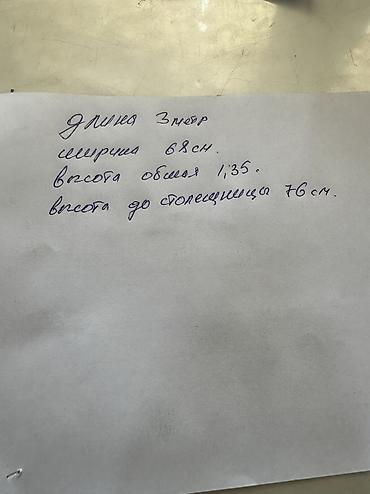 длина 3 метр
ширина 68 см.
высота общая 1,35.
высота до столещницы 76 см.